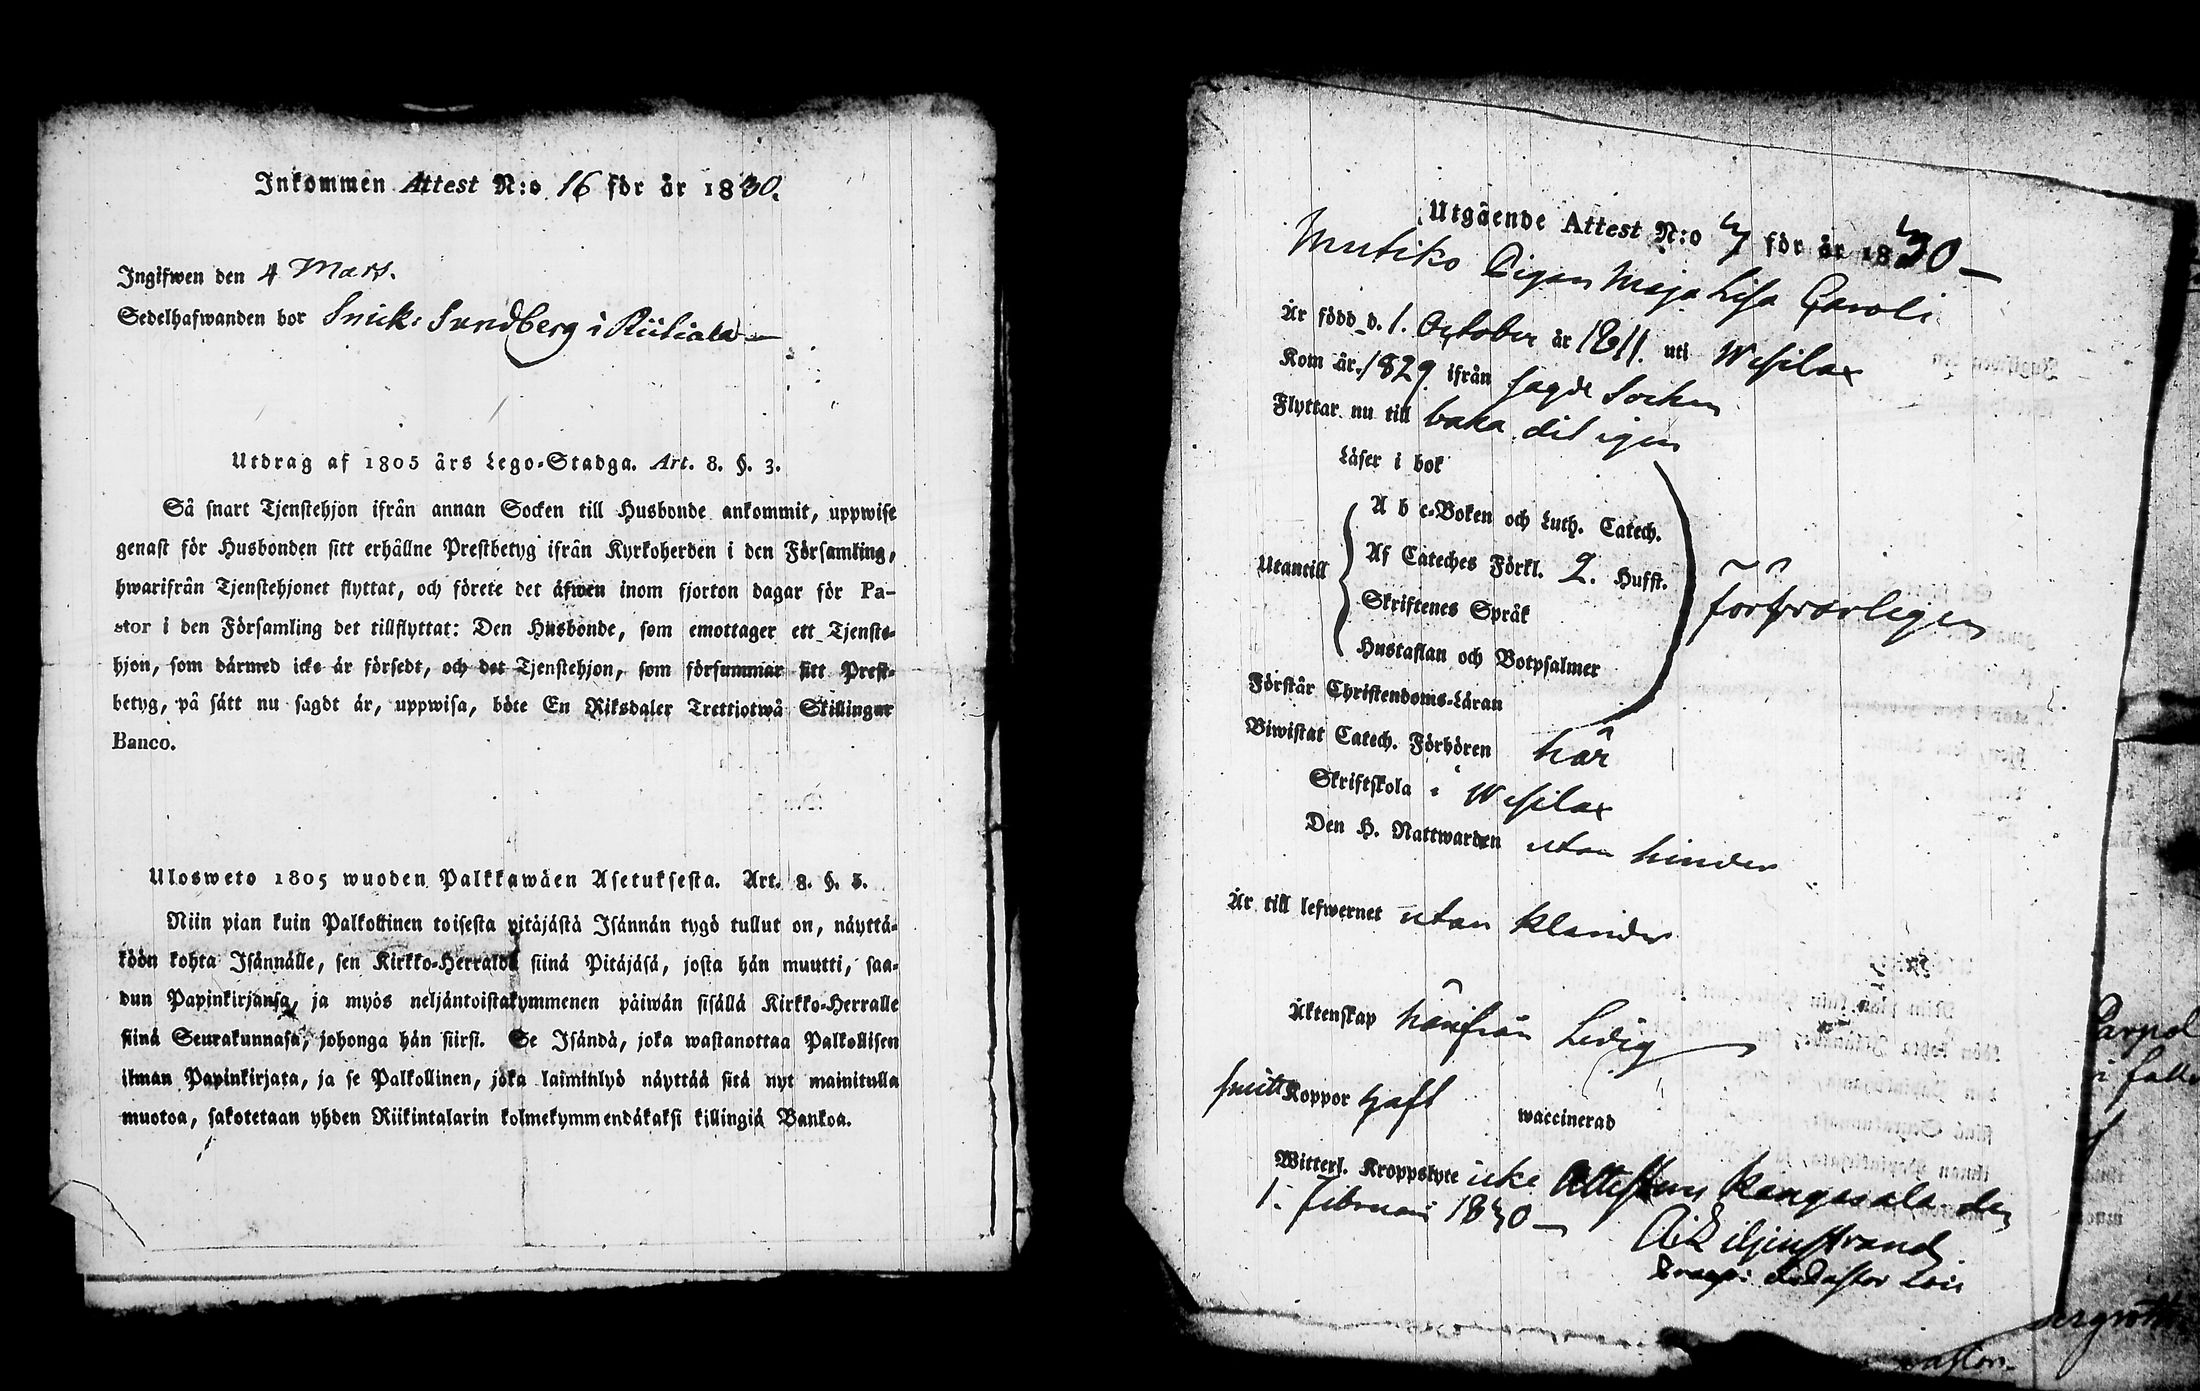 Inkommen Attest N:o 16 för år 1830.
Ingifwen den 4 Mars.
Sedelhafwanden bor Snick: Sundberg i Riiliala
Utdrag af 1805 års Lego-Stadga. Art. 8. §. 3.
Så snart Tjenstehjon ifrån annan Socken till Husbonde ankommit, uppwise
genast för Husbonden sitt erhållne Prestbetyg ifrån Kyrkoherden i den Församling,
hwarifrån Tjenstehjonet flyttat, och förete det äfwen inom fjorton dagar för Pa-
stor i den Församling det tillflyttat: Den Husbonde, som emottager ett Tjenste-
hjon, som därmed icke är försedt, och det Tjenstehjon, som försummar sitt Prest-
betyg, på sätt nu sagdt är, uppwisa, böte En Riksdaler Trettiotwå Skillingar
Banco.
Ulosweto 1805 wuoden Palkkawäen Asetuksesta. Art. 8. §. 3.
Niin pian kuin Palkollinen toisesta pitäjästä Isännän tygö tullut on, näyttä-
köön kohta Isännälle, sen Kirkko-Herralda siinä Pitäjäsä, josta hän muutti, saa-
dun Papinkirjansa, ja myös neljäntoistakymmenen päiwän sisällä Kirkko-Herralle
siinä Seurakunnasa, johonga hän siirsi. Se Isändä, joka wastanottaa Palkollisen
ilman Papinkirjata, ja se Palkollinen, joka laiminlyö näyttää sitä nyt mainitulla
muotoa, sakotetaan yhden Riikintalarin kolmekymmendäkaksi killingiä Bankoa.
Utgående Attest N:o 7 för år 1830
Mutiko Pigan Maja Lisa Caroli
Är född d. 1. October år 1811. uti Wesilax
Kom år 1829 ifrån sagde Socken
Flyttar nu till baka dit igen
Läser i bok
A b c-Boken och Luth. Catech.
Utantill Af Cateches Förkl. 2. Hufst.
Skriftenes Språk
Hustaflan och Botpsalmer
försvarligen
Förstår Christendoms-Läran
Biwistat Catech. Förhören här
Skriftskola i Wesilax
Den H. Nattwarden utan hinder
Är till lefwernet utan klander
Äktenskap härifrån Ledig
Koppor haft waccinerad
Witterl. Kroppslyte icke Attesteras Kangasala den
1. Februari 1830
A: Liljenstrand